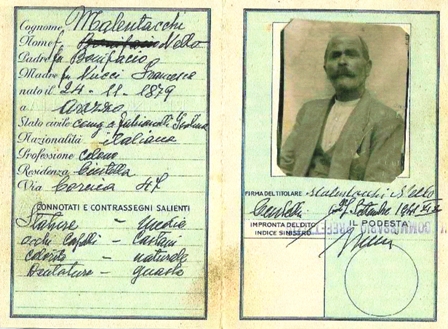 Cognome Malentacchi
Nome Nello
Padre fu Bonifacio
Madre fu Nucci Francesca
nato il 24 - 11 - 1879
a Arezzo
Stato civile coniug. a
Nazionalità italiana
Professione colono
Residenza Civitella
Via Cornia 47
CONNOTATI E CONTRASSEGNI SALIENTI
Statura - media
occhi Capelli - Castani
colorito - naturale
Dentatura - guasta
FIRMA DEL TITOLARE Malentacchi Nello
Civitella 27 Settembre 1941 XIX
IMPRONTA DEL DITO
INDICE SINISTRO
IL PODESTÀ